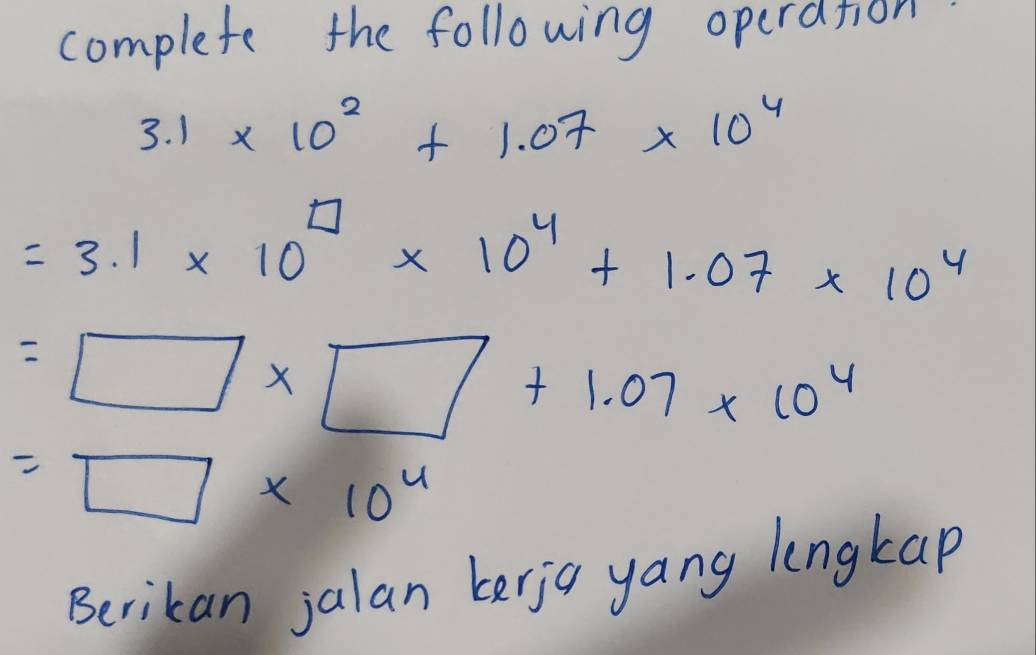 complete the following operation.
3.1 × 10² + 1.07 × 10⁴
= 3.1 × 10^□ × 10⁴ + 1.07 × 10⁴
= □ × □ + 1.07 × 10⁴
= □ × 10⁴
Berikan jalan kerja yang lengkap